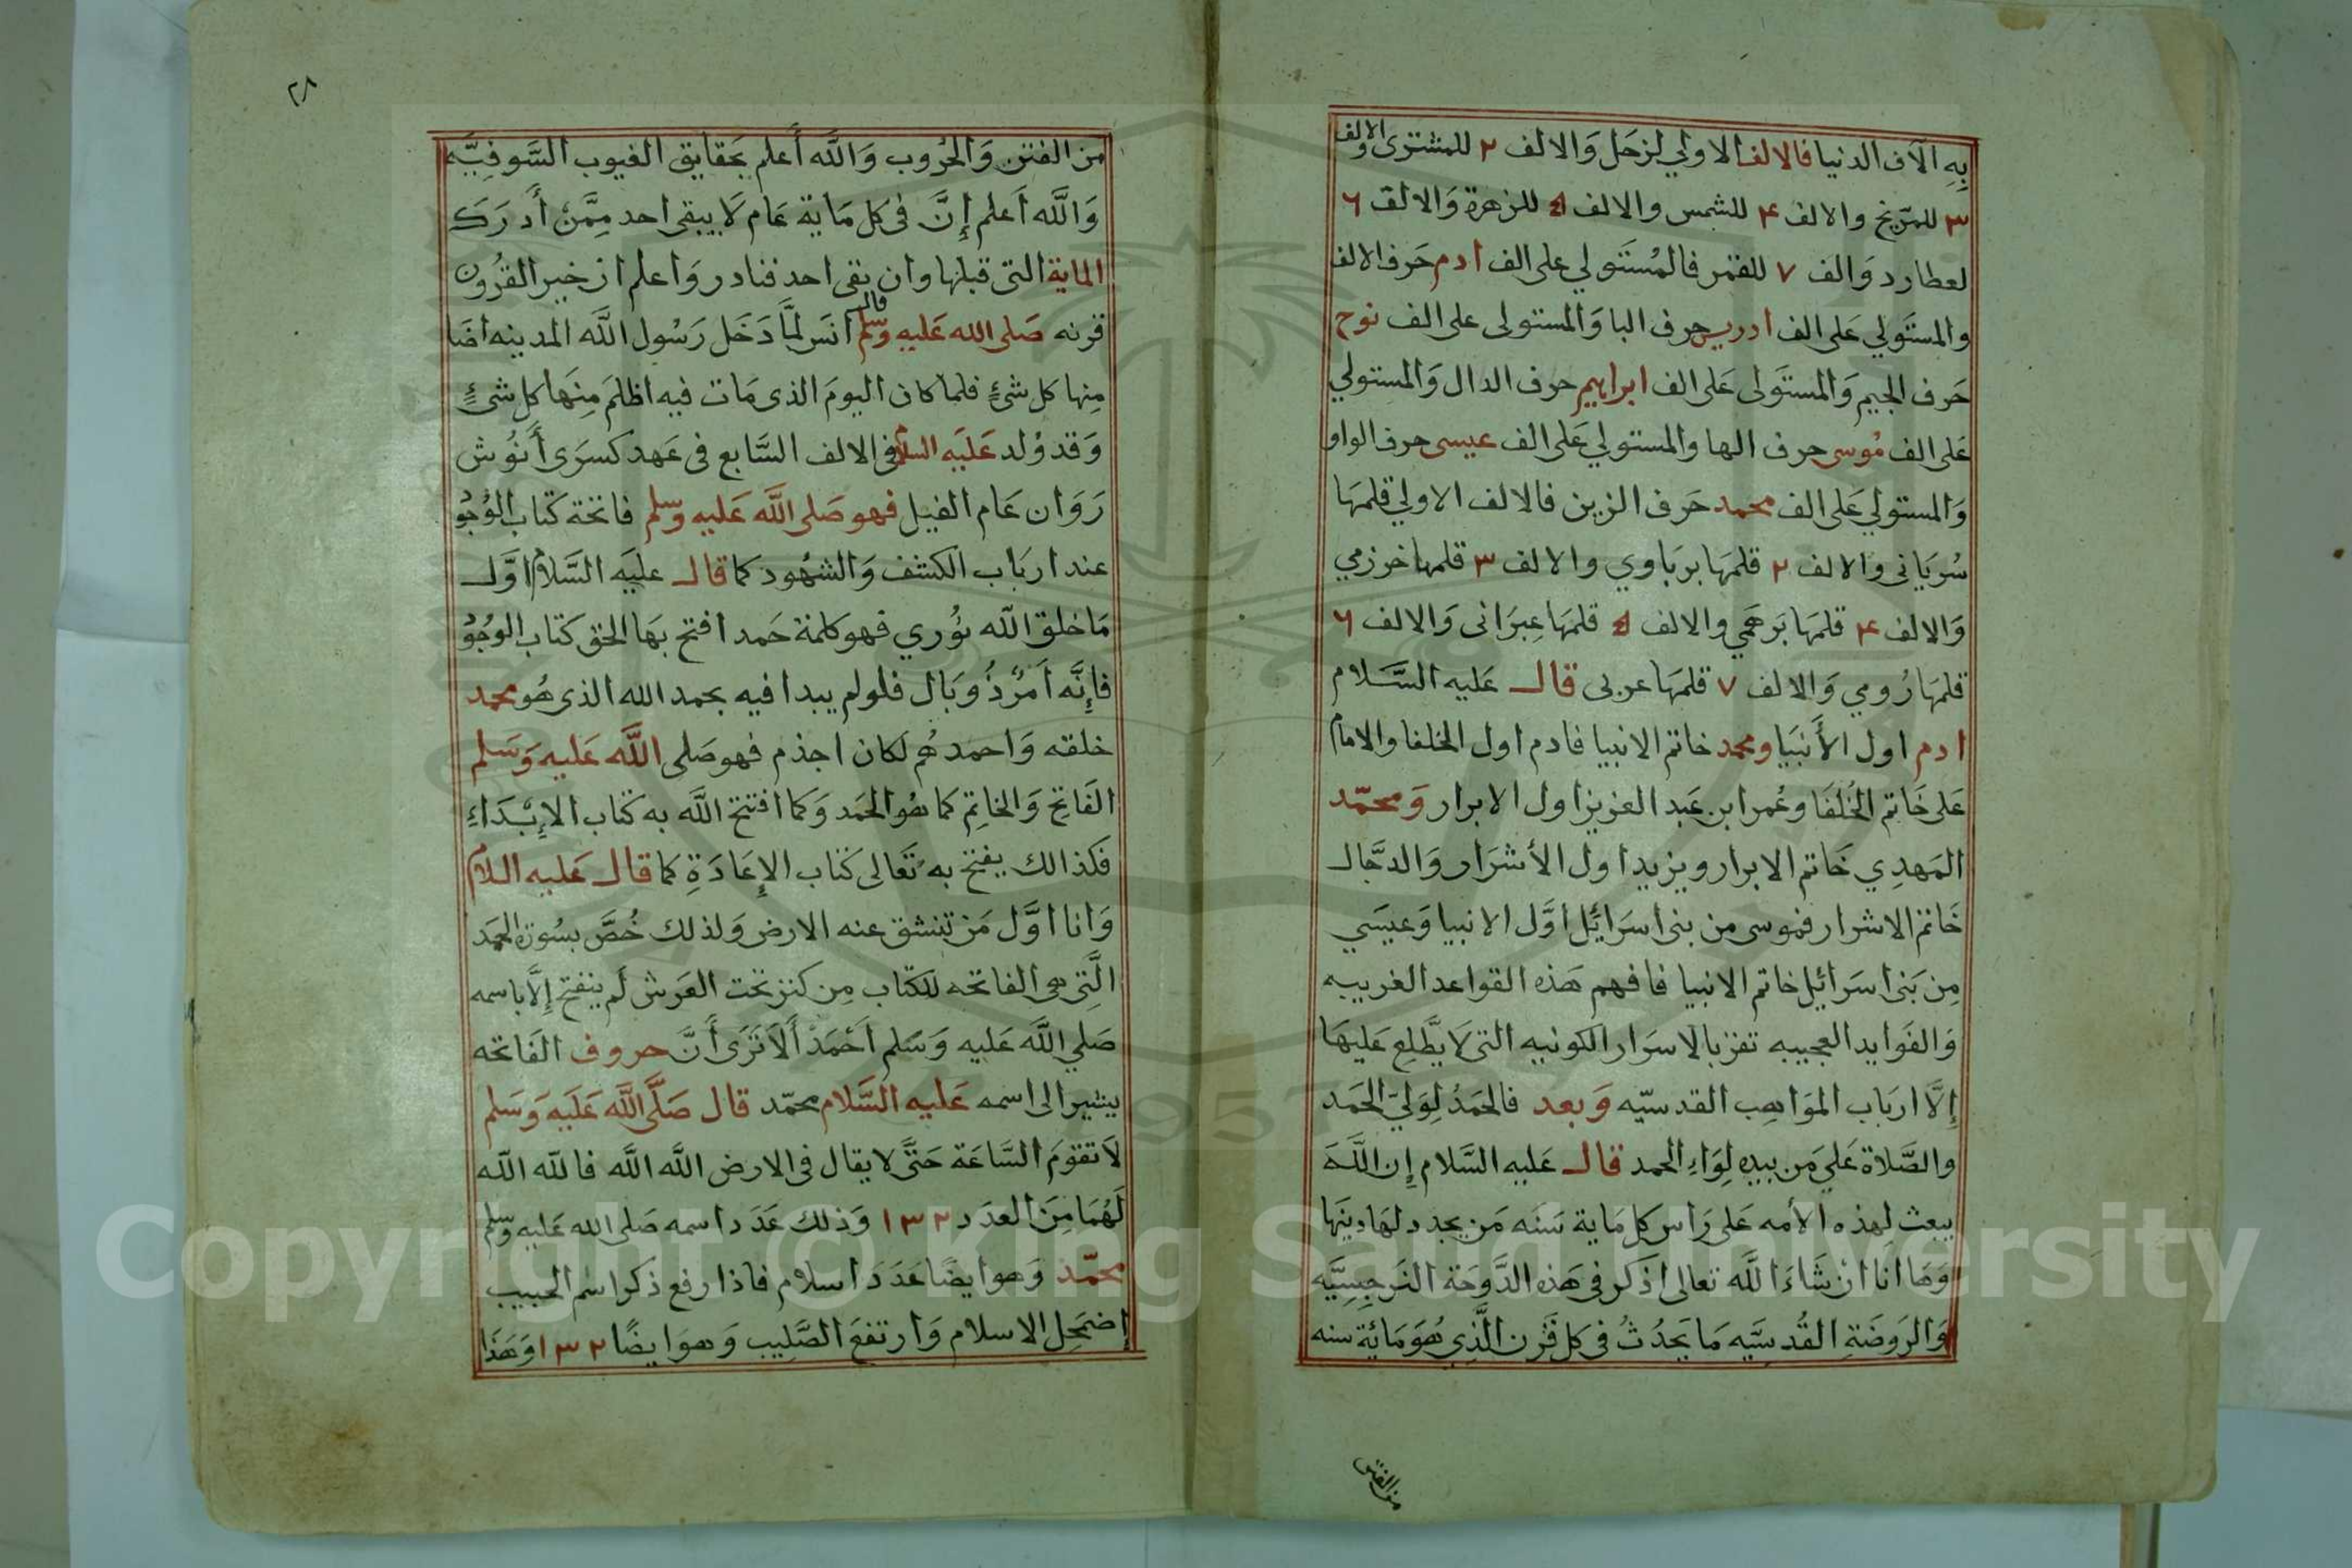 بِهِ الآف الدنيا فالالف الاولي لزحل وَالالف ٢ للمشترى والالف
٣ للمرّيخ والالف ۴ للشمس والالف ٥ للزهرة وَالالف ٦
لعطارد وَالف ٧ للقمر فالمُستَولي على الف ادم حَرف الالف
والمستَولي عَلى الف ادريس حرف البا وَالمستولى على الف نوح
حَرف الجيم وَالمستَولى عَلى الف ابراهيم حرف الدال وَالمستولي
عَلى الف مُوسى حرف الها والمستولي عَلى الف عيسى حرف الواو
وَالمستولي عَلى الف محمد حَرف الزين فالالف الاولي قلمهَا
سُريَانى والالف ٢ قلمَهَا برباوي والالف ٣ قلمها خوزمي
وَالالف ۴ قلمَهَا بَرهَمي والالف ٥ قلمَهَا عِبرَانى وَالالف ٦
قلمهَا رُومي وَالالف ٧ قلمَهَا عربى قال عَليه السَّلام
ادم اول الأَنبيَا ومحمد خاتم الانبيا فادم اول الخلفا والامام
عَلى خَاتم الخُلفَا وعُمر ابن عَبد العَزيز اول الابرار وَمحمّد
المَهدِي خَاتم الابرار ويزيد اول الأشرَار وَالدجَّال
خَاتم الاشرار فموسى من بنى اسرَائِل اوَّل الانبيا وَعيسَي
مِن بَنى اسرَائيل خاتم الانبيا فافهم هَذه القواعد الغريبه
وَالفَوايد العجيبه تفز بالاسرَار الكونيه التى لا يَطَّلِع عَليهَا
إِلَّا اربَاب الموَاهِب القدسيّه وَبعد فالحَمدُ لِوَليّ الحَمد
والصَّلاة عَليَ مَن بيده لِوَاءِ الحمد قال عَليه السَّلام إِن اللَّهَ
يبعث لهذه الأمه عَلى رَاس كل مَاية سَنَه مَن يجدد لهَا دينهَا
وَهَا انَا ان شَاءَ اللَّه تعالى اذكر فى هَذه الدَّوحَة النرجِسِيَّه
وَالرَوضَةِ القُدسيَّه مَا يَحدُثُ فى كل قَرن الَّذِي هُوَ مَائَة سنه
من الفتن
٢٨
مِن الفتن وَالحُروب وَاللَّه أَعلم بحَقايق الغيوب السَّوفِيَّه
وَاللَّه اَعلم إِنَّ فى كل مَاية عَام لَا يبقى احد مِمَّن أَدرَكَ
الماية التى قبلها وان بقى احد فنادر وَاعلم ان خير القُرُون
قرنه صَلى الله عَليه وسَلم قال انَس لمَّا دَخَل رَسُول اللَّه المدينه اضَا
مِنها كل شئٍ فلما كان اليومَ الذى مَات فيه اظلمَ مِنهَا كل شئٍ
وَقد وُلد عَليَه السلام فى الالف السَّابع فى عَهد كسرَى أَنُوش
رَوَان عَام الفيل فهو صَلى اللَّه عَليه وسَلم فاتحة كتاب الوُجُو
عند اربَاب الكشف وَالشهُود كما قال عليَه السَّلام اوَّل
مَا خلق اللّه نُوري فهو كلمة حَمد افتح بهَا الحق كتاب الوجُو
فإِنَّه اَمرٌ ذُو بَال فلولم يبدا فيه بحمد الله الذى هُو محمد
خلقه وَاحمدهُم لَكان اجذم فهو صَلى اللَّه عَليه وَسَلم
الفَاتحِ وَالخاتِم كما هُو الحمَد وَكما افتتح اللَّه به كتاب الإِبْدَاءِ
فكذالك يفتح به تَعَالى كتاب الإِعَادَةِ كما قال عَليه السلام
وَانا اوَّل مَن تنشق عنه الارض وَلذلك خُصَّ بسُورة الحَمَد
الَّتِى هى الفاتحه للكتاب مِن كنز تحت العَرش لَم يفتح إِلَّا باسمه
صَلي اللَّه عَليه وَسَلم اَحْمَدْ أَلَا تَرَى أَنَّ حروف الفَاتحه
يشير الى اسمه عَليه السَّلام محمّد قال صَلَّى اللَّه عَلَيَه وَسَلم
لَا تقومَ السَّاعَة حَتَّى لا يقال فى الارض اللَّه اللَّه فاللّه اللّه
لَهُمَا مِنَ العدَد ١٣٢ وَذلك عَدَد اسمه صَلى الله عَليه وسَلم
محمّد وَهو ايضًا عَدَدَ اسلام فاذا رفع ذكر اسم الحبيب
إضمَحِل الاسلام وَارتفعَ الصَّلِيب وَهوَ ايضًا ١٣٢ وَهَذَا